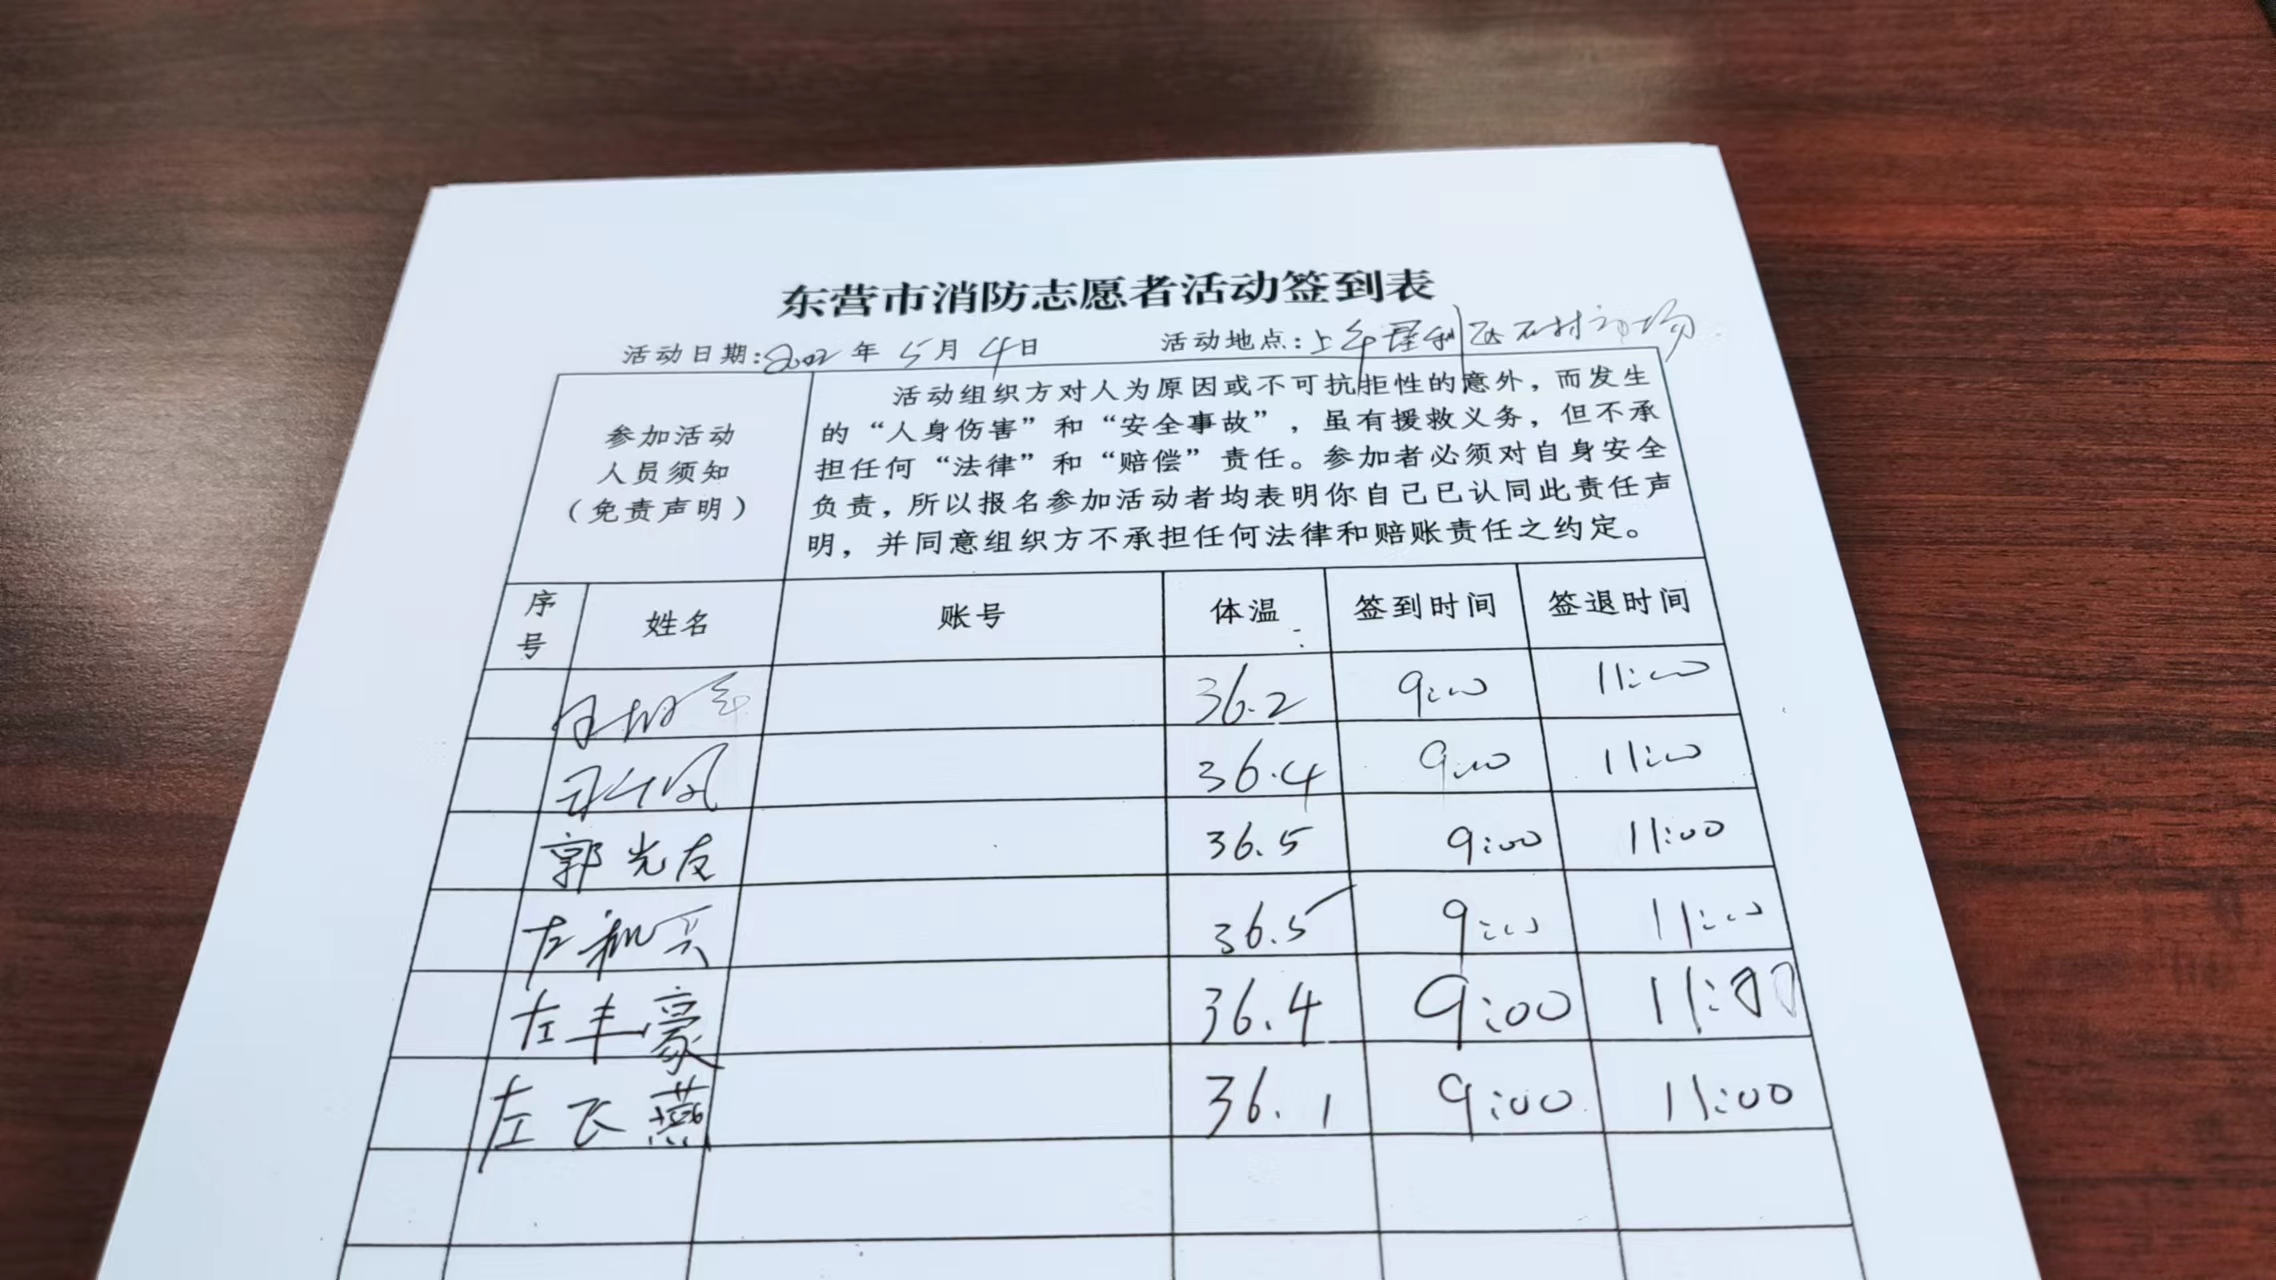 东营市消防志愿者活动签到表
活动日期:2022年5月4日 活动地点:上午垦利区
参加活动
人员须知
（免责声明）
活动组织方对人为原因或不可抗拒性的意外，而发生
的“人身伤害”和“安全事故”，虽有援救义务，但不承
担任何“法律”和“赔偿”责任。参加者必须对自身安全
负责，所以报名参加活动者均表明你自己已认同此责任声
明，并同意组织方不承担任何法律和赔账责任之约定。
序号 姓名 账号 体温 签到时间 签退时间
36.2 9:00 11:00
36.4 9:00 11:00
郭光友 36.5 9:00 11:00
左 36.5 9:00 11:00
左丰豪 36.4 9:00 11:00
左长燕 36.1 9:00 11:00